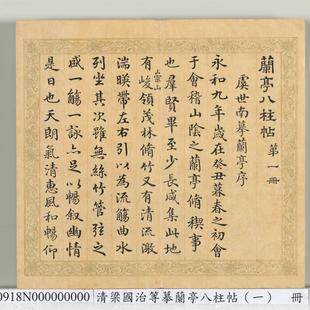 蘭亭八柱帖 第一冊
虞世南摹蘭亭序
永和九年歲在癸丑暮春之初會
于會稽山陰之蘭亭脩稧事
也羣賢畢至少長咸集此地
有崇山峻領茂林脩竹又有清流激
湍暎帶左右引以為流觴曲水
列坐其次雖無絲竹管弦之
盛一觴一詠亦足以暢叙幽情
是日也天朗氣清惠風和暢仰
0918N000000000 清梁國治等摹蘭亭八柱帖(一) 冊